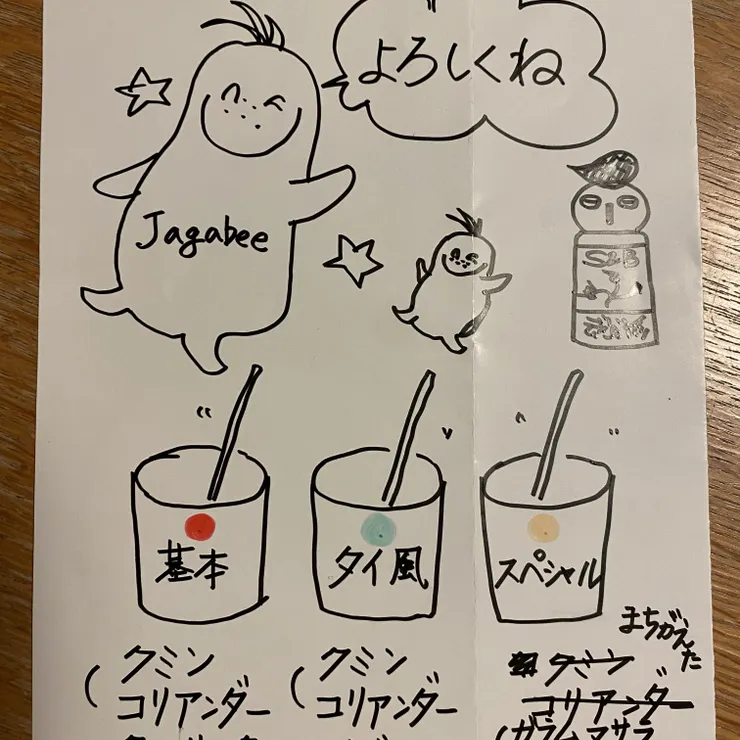 よろしくね
Jagabee
基本
タイ風
スペシャル
まちがえた
クミン
コリアンダー
クミン
コリアンダー
クミン
コリアンダー
ガラムマサラ